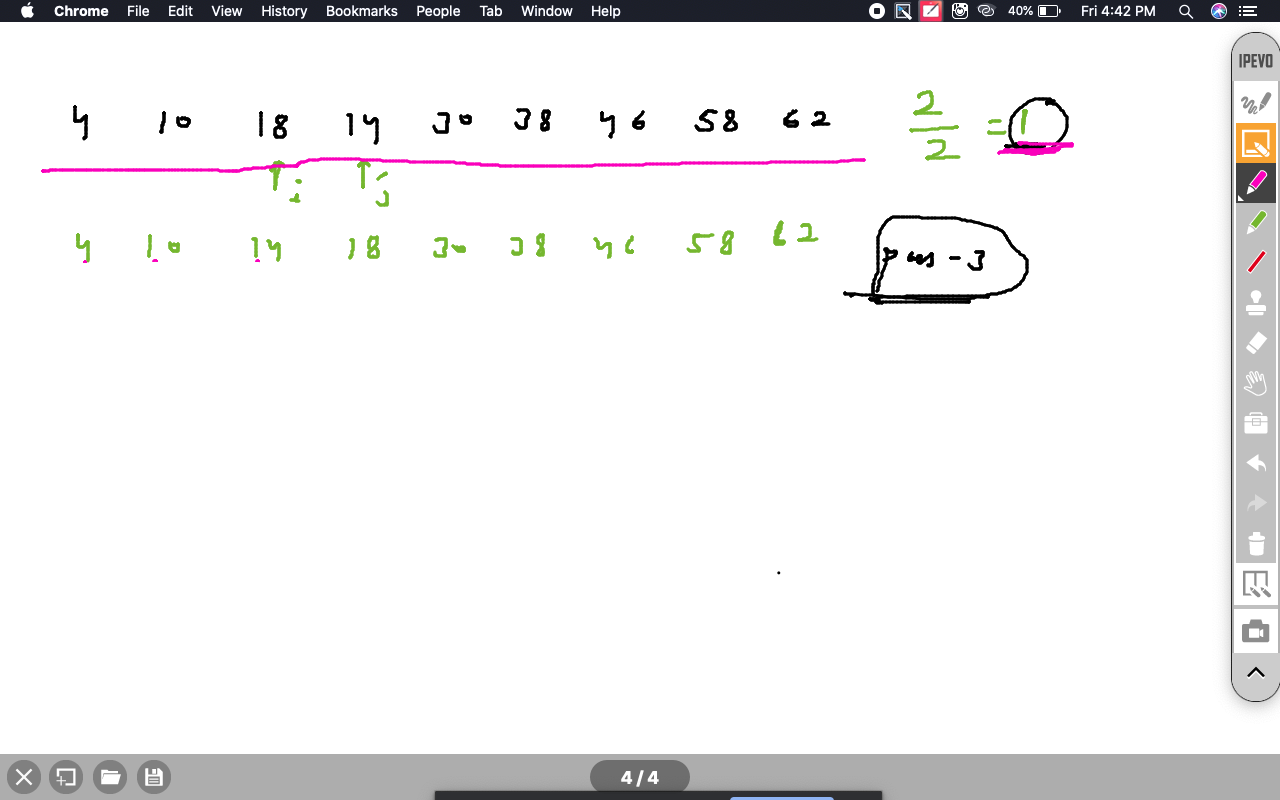 Chrome File Edit View History Bookmarks People Tab Window Help 40% Fri 4:42 PM
IPEVO
4 10 18 14 30 38 46 58 62
2/2 = 1
i j
4 10 14 18 30 38 46 58 62
pass - 3
4 / 4